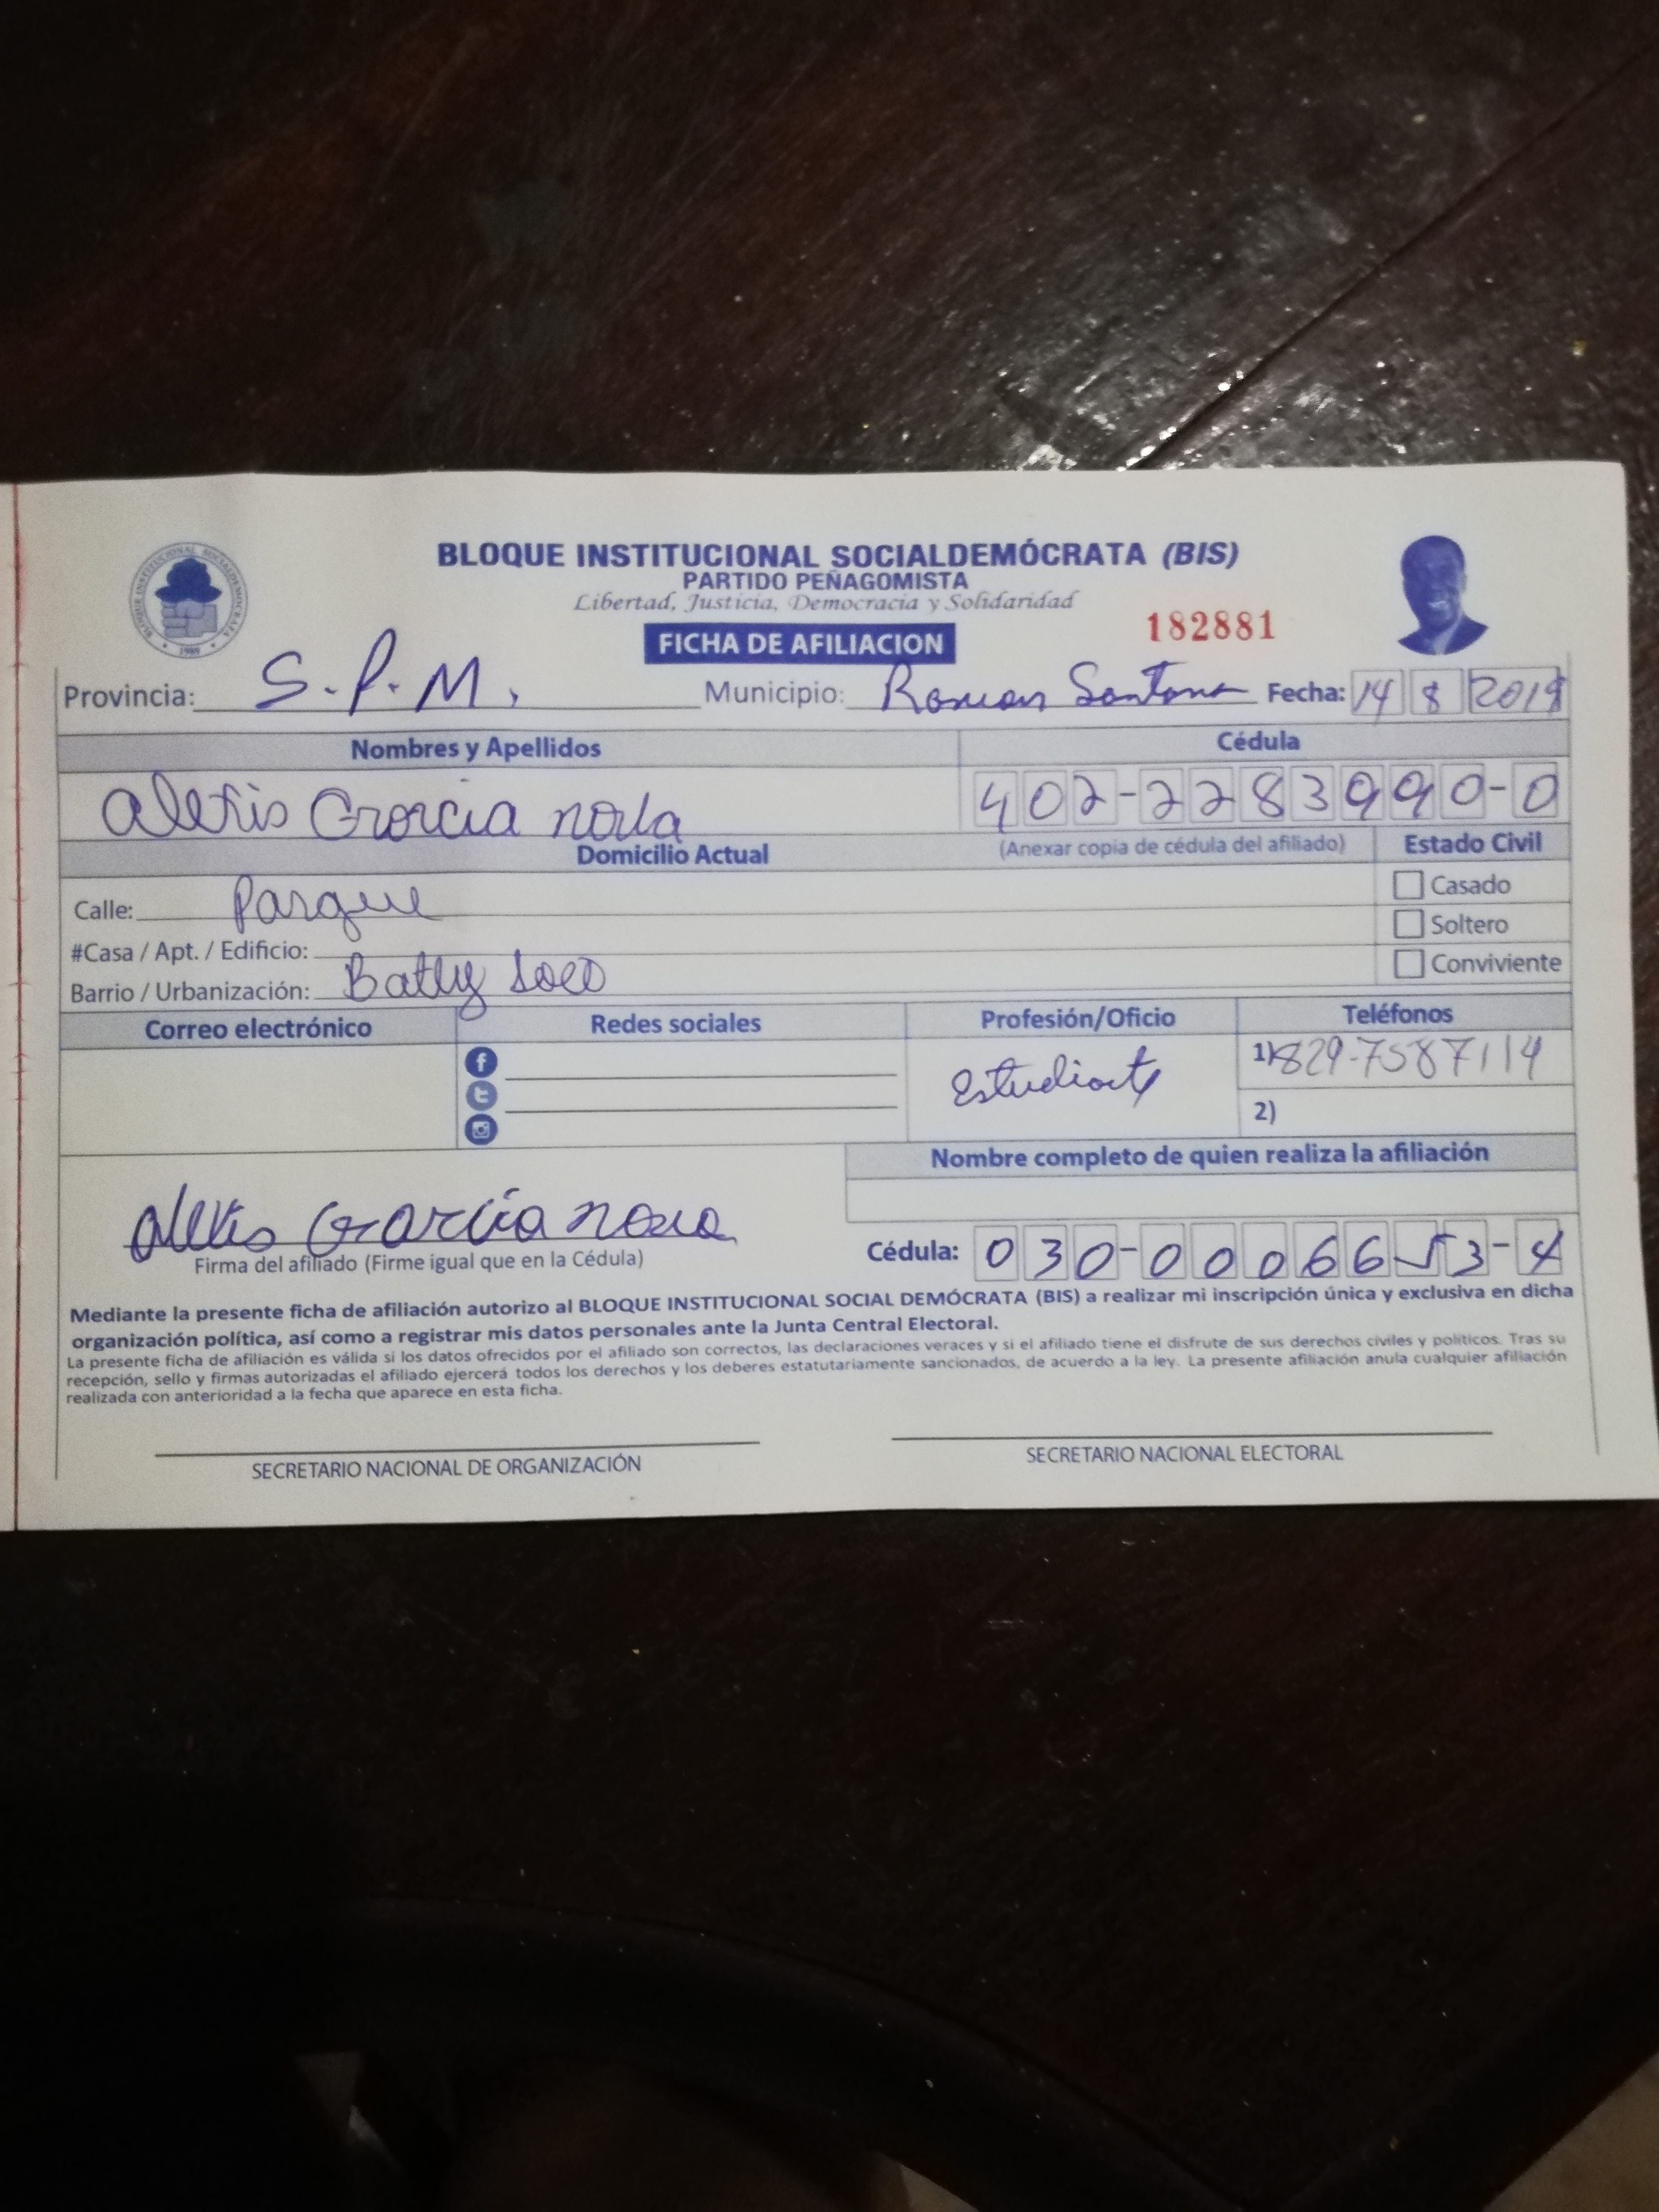 BLOQUE INSTITUCIONAL SOCIALDEMÓCRATA (BIS)
PARTIDO PEÑAGOMISTA
Libertad, Justicia, Democracia y Solidaridad
BLOQUE INSTITUCIONAL SOCIALDEMOCRATA
1989
182881
FICHA DE AFILIACION
Provincia: S.P.M. Municipio: Ramon Santana Fecha: 14 8 2019
Nombres y Apellidos Cédula
alexis Garcia 402-2283990-0
Domicilio Actual (Anexar copia de cédula del afiliado) Estado Civil
Calle: Parque Casado
#Casa / Apt. / Edificio: Soltero
Barrio / Urbanización: Batey Soco Conviviente
Correo electrónico Redes sociales Profesión/Oficio Teléfonos
Estudiante 1) 829-7587114
2)
Nombre completo de quien realiza la afiliación
alexis Garcia
Firma del afiliado (Firme igual que en la Cédula) Cédula: 030-0006653-4
Mediante la presente ficha de afiliación autorizo al BLOQUE INSTITUCIONAL SOCIAL DEMÓCRATA (BIS) a realizar mi inscripción única y exclusiva en dicha
organización política, así como a registrar mis datos personales ante la Junta Central Electoral.
La presente ficha de afiliación es válida si los datos ofrecidos por el afiliado son correctos, las declaraciones veraces y si el afiliado tiene el disfrute de sus derechos civiles y políticos. Tras su
recepción, sello y firmas autorizadas el afiliado ejercerá todos los derechos y los deberes estatutariamente sancionados, de acuerdo a la ley. La presente afiliación anula cualquier afiliación
realizada con anterioridad a la fecha que aparece en esta ficha.
SECRETARIO NACIONAL DE ORGANIZACIÓN SECRETARIO NACIONAL ELECTORAL